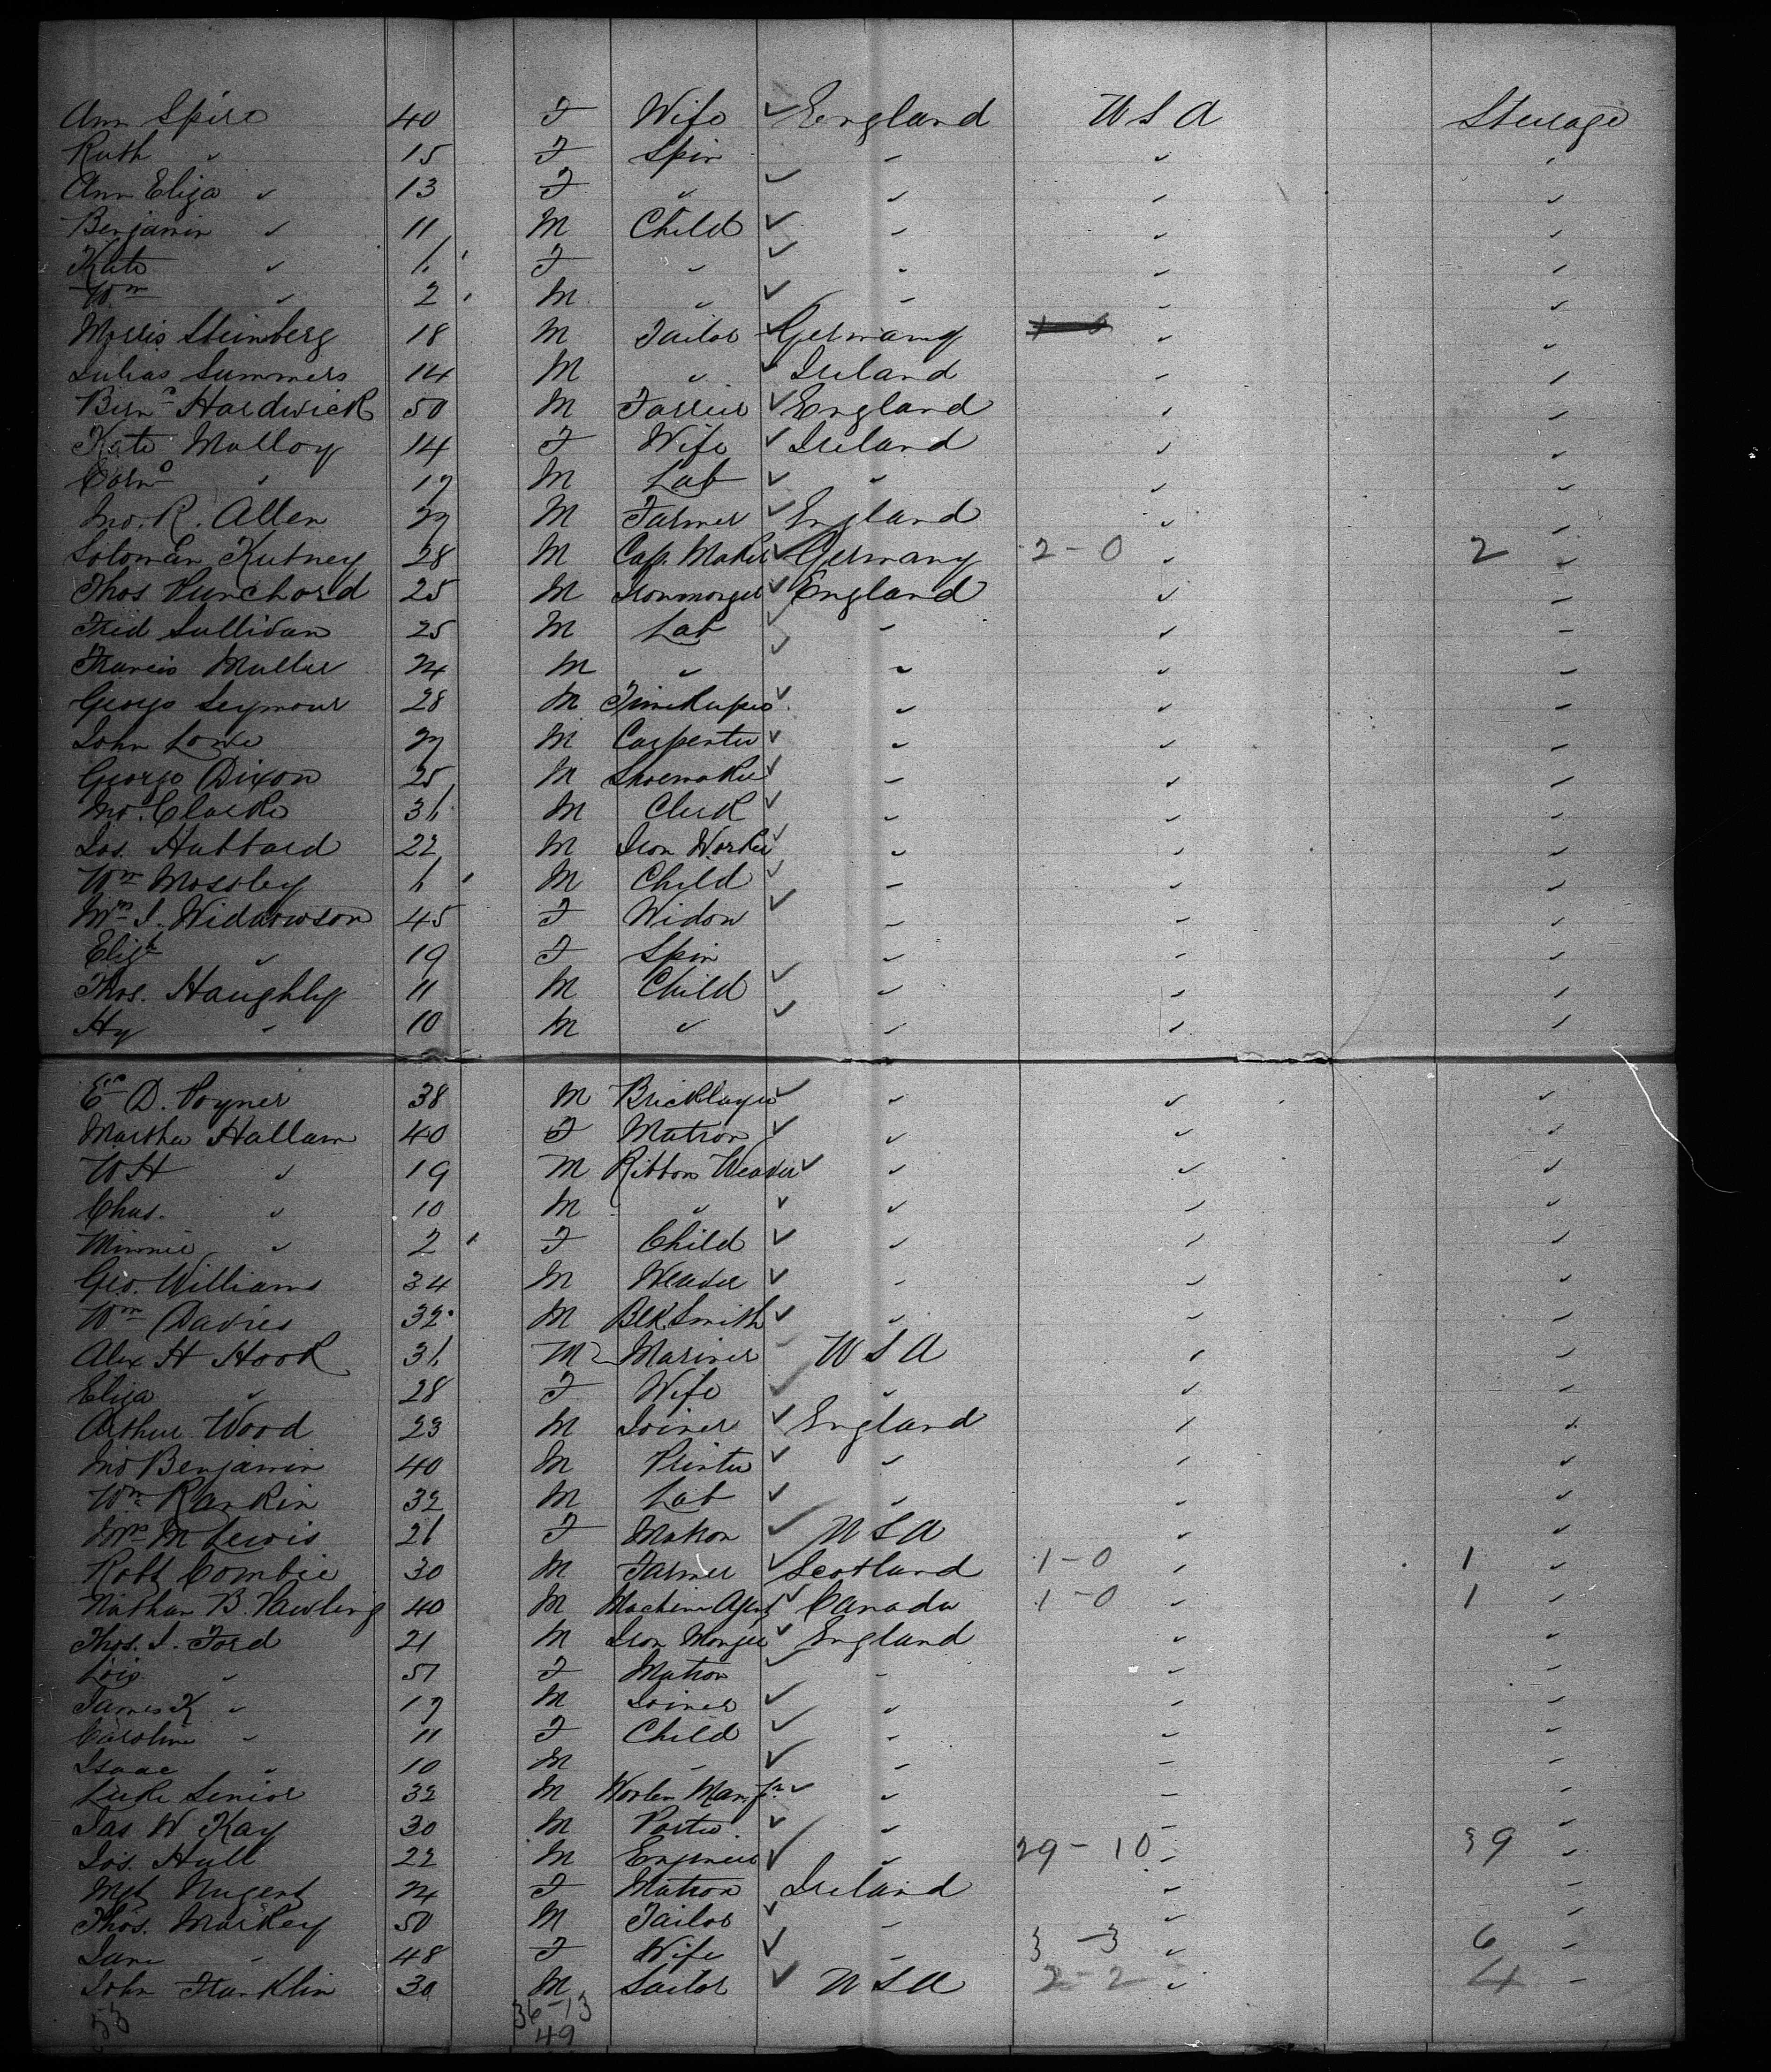 Ann Spiro 40 F Wife ✓ England U S A Steerage
Ruth " 15 F Spin " " "
Ann Eliza " 13 F " ✓ " " "
Benjamin " 11 M Child ✓ " " "
Kate " 6 F " ✓ " " "
Wm " 2 M " ✓ " " "
Morris Steinberg 18 M Tailor ✓ Germany " "
Julius Summers 14 M " ✓ Ireland " "
Hardwick 50 M Farrier ✓ England " "
Kate Molloy 14 F Wife ✓ Ireland " "
Corns " 17 M Lab ✓ " " "
Jno. R. Allen 27 M Farmer ✓ England " "
Soloman Kutney 28 M Cap. Maker ✓ Germany 2-0 " 2 "
Thos Punchard 25 M Ironmonger ✓ England " "
Fred Sullivan 25 M Lab ✓ " " "
Francis Muller 24 M " ✓ " " "
George Seymour 28 M Timekeeper ✓ " " "
John Lowe 27 M Carpenter ✓ " " "
George Dixon 25 M Shoemaker ✓ " " "
Jno. Clarke 36 M Clerk ✓ " " "
Jos. Hubbard 22 M Iron Worker ✓ " " "
Wm Mossley 6 M Child ✓ " " "
Mrs J. Widdowson 45 F Widow ✓ " " "
Elizh " 19 F Spin " " "
Thos. Haughly 11 M Child ✓ " " "
Hy " 10 M " ✓ " " "
D. Poyner 38 M Bricklayer ✓ " " "
Martha Hallam 40 F Matron ✓ " " "
W H " 19 M Ribbon Weaver ✓ " " "
Chas. " 10 M " ✓ " " "
Minnie " 2 F Child ✓ " " "
Geo. Williams 34 M Weaver ✓ " " "
Wm Davies 32 M Blk Smith ✓ " " "
Alex H Hook 36 M Mariner U S A " "
Eliza " 28 F Wife ✓ " " "
Arthur Wood 23 M Joiner ✓ England " "
Jno Benjamin 40 M Printer ✓ " " "
Wm Rankin 32 M Lab ✓ " " "
Mrs M Lewis 26 F Matron ✓ U S A " "
Robt Combie 30 M Farmer ✓ Scotland 1-0 " 1 "
Nathan B. Pawling 40 M Machine Agent ✓ Canada 1-0 " 1 "
Thos. J. Ford 21 M Iron Monger ✓ England " "
Lois " 51 F Matron ✓ " " "
James K " 17 M Joiner ✓ " " "
Caroline " 11 F Child ✓ " " "
Isaac " 10 M " ✓ " " "
Luke Senior 32 M Woolen Manfr ✓ " " "
Jas W Kay 30 M Porter ✓ " " "
Jos. Hull 22 M Engineer ✓ " 29-10 " 39 "
Mgt Nugent 24 F Matron Ireland " "
Thos. Markey 50 M Tailor ✓ " " "
Jane " 48 F Wife ✓ " 3-3 " 6 "
John Franklin 30 M Sailor ✓ U S A 2-2 " 4 "
53 36-13
49